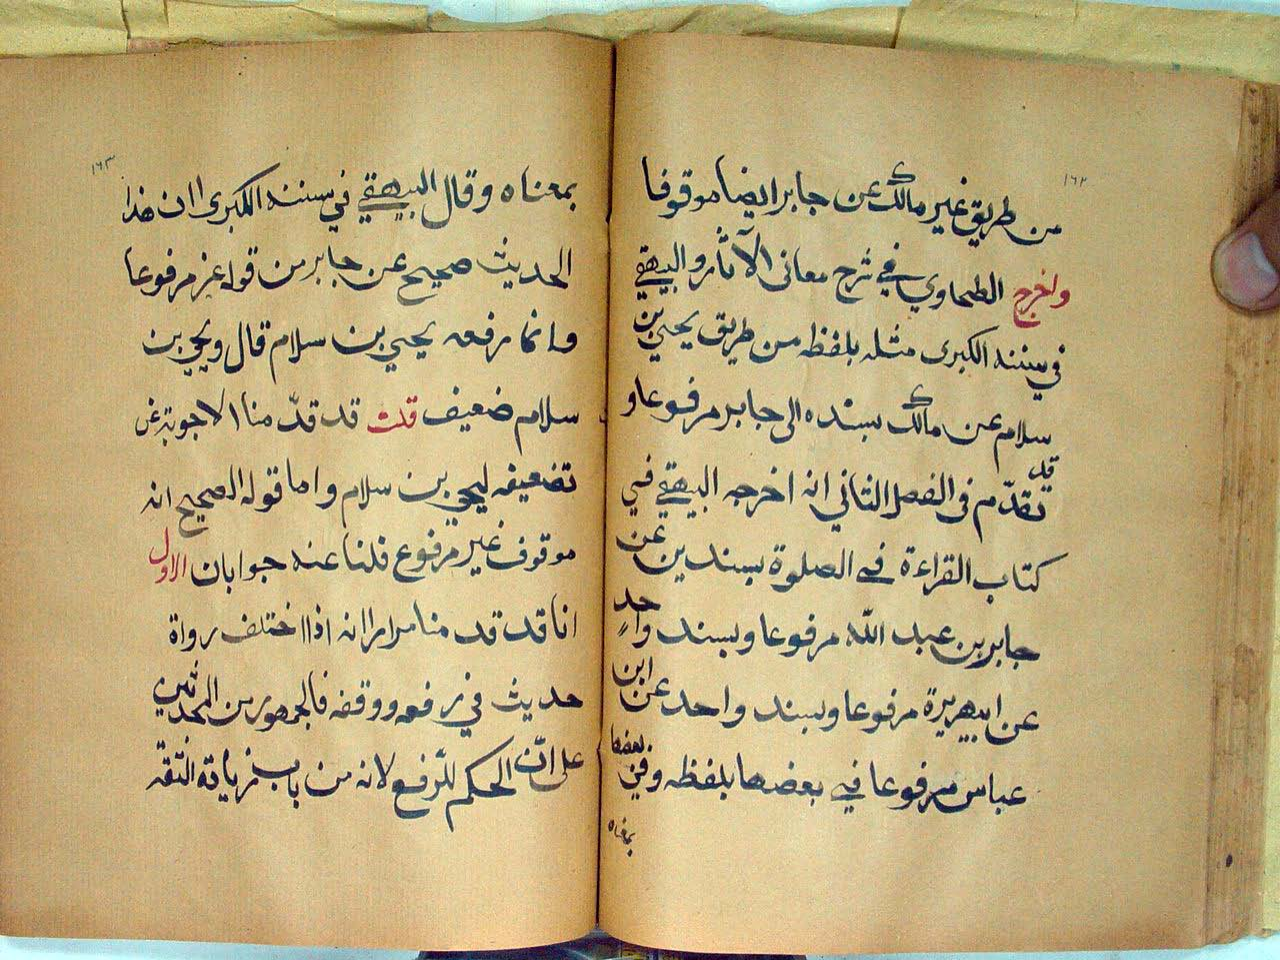 ١٦٢
من طريق غير مالك عن جابر ايضا موقوفا
واخرج الطحاوي في شرح معاني الآثار والبيهقي
في سننه الكبرى مثله بلفظه من طريق يحيى بن
سلام عن مالك بسنده الى جابر مرفوعا و
قد تقدّم في الفصل الثاني انه اخرجه البيهقي في
كتاب القراءة في الصلوة بسندين عن
جابر بن عبد الله مرفوعا وبسند واحدٍ
عن ابيهريرة مرفوعا وبسند واحد عن ابن
عباس مرفوعا في بعضها بلفظه وفي بعضها
بمعناه
١٦٣
بمعناه وقال البيهقي في سننه الكبرى ان هذا
الحديث صحيح عن جابر من قوله غير مرفوعا
وانما رفعه يحيي بن سلام قال ويحيي بن
سلام ضعيف قلت قد قدّمنا الاجوبة عن
تضعيفه ليحيي بن سلام واما قوله الصحيح انه
موقوف غير مرفوع فلنا عنه جوابان الاول
انا قد قدمنا مرارا انه اذا اختلف رواة
حديث في رفعه ووقفه فالجمهور من المحدثين
على انّ الحكم للرّفع لانه من باب زيادة الثقة